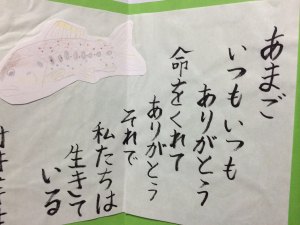 あまご
いつもいつも
ありがとう
命をくれて
ありがとう
それで
私たちは
生きて
いる